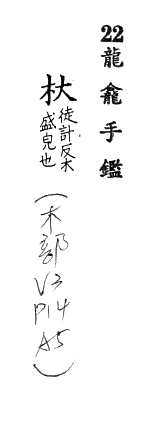 22龍龕手鑑
杕
徒計反木
盛皃也
(木部
V3
P14
A5)